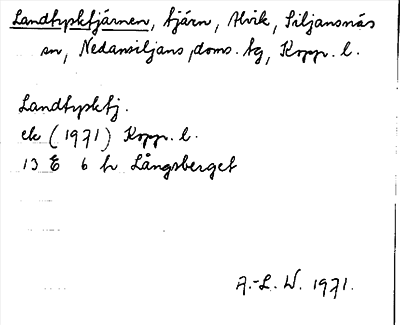 Landtysktjärnen, tjärn, Alvik, Siljansnäs
sn, Nedansiljans doms. tg, Kopp. l.
Landtysktj.
ek (1971) Kopp. l.
13 E 6 h Långsberget
A.-L. W. 1971.